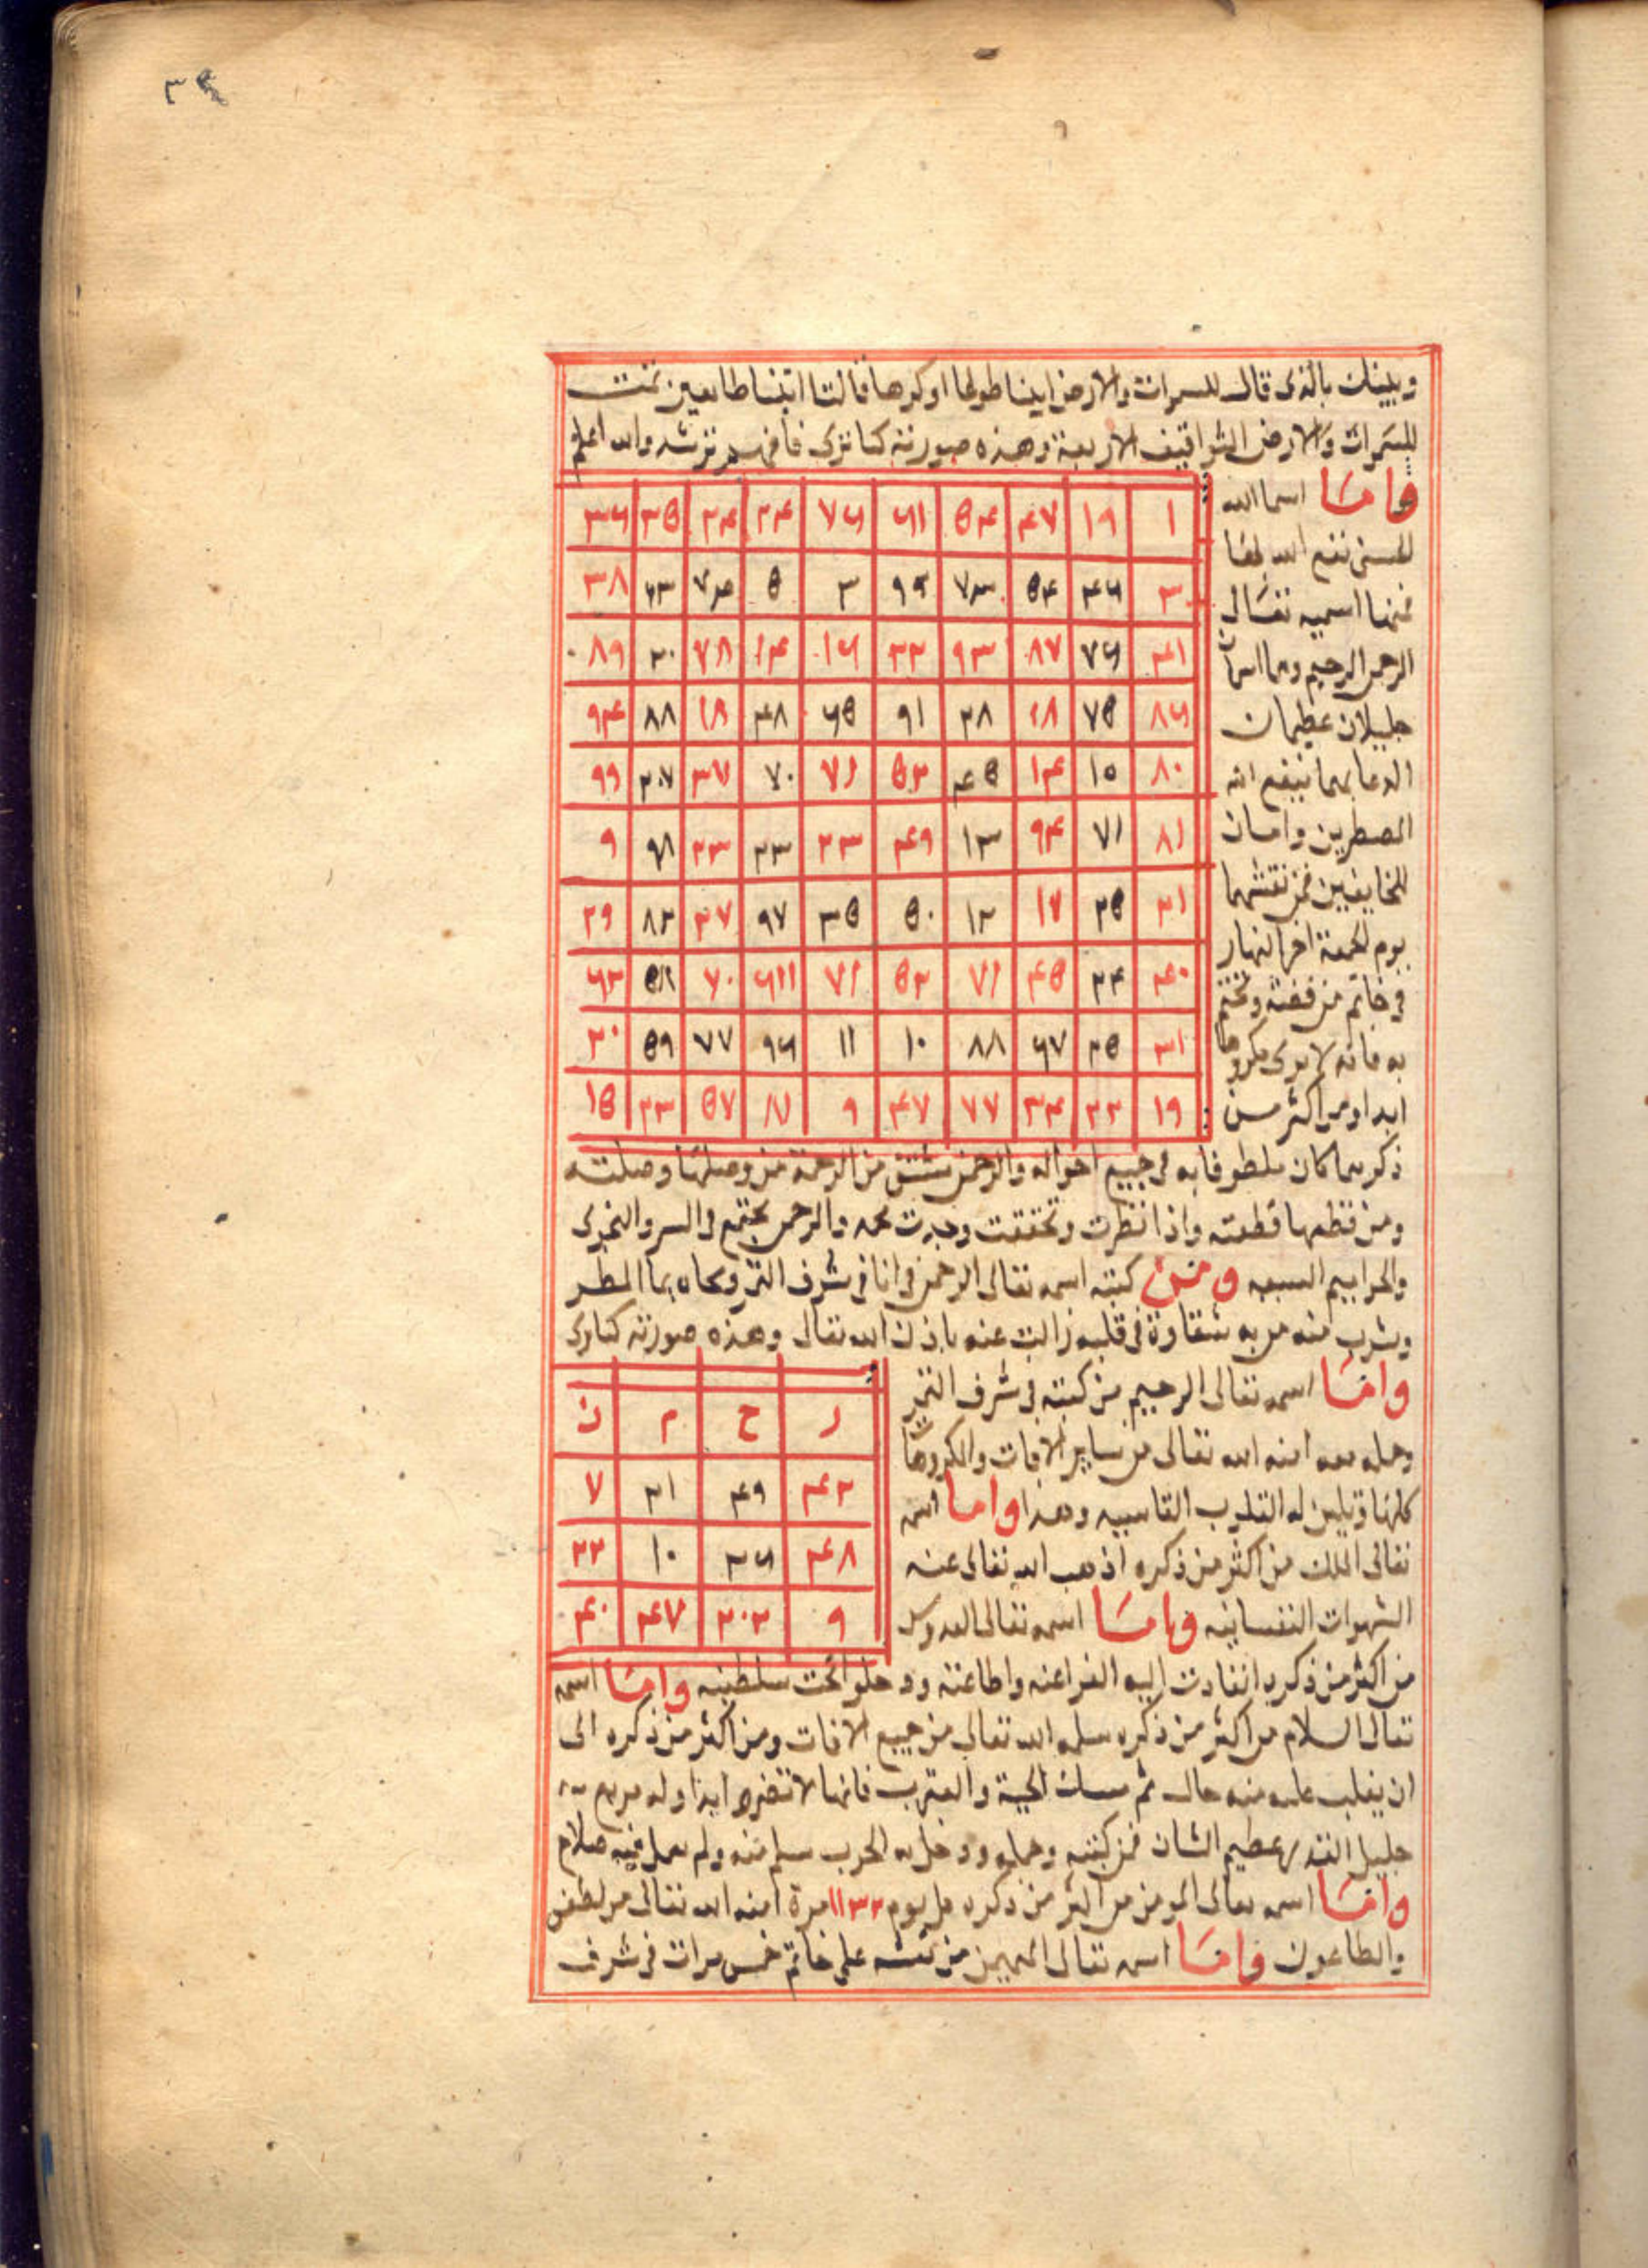 ٣٤
وبينك بالذى قال للسموات والارض ايتيا طوعا او كرها قالتا اتينا طايعين تمت
للسموات والارض التواقيف الاربعة وهذه صورته كما ترى فافهم ترشد والله اعلم
فامـا اسما الله
الحسنى نفع الله بها
فمنها اسميه تعـالى
الرحمن الرحيم وهما اسمان
جليلان عظيمان
الدعا بهما ينفع الله
المضطرين وامـان
للخايفين فمن نقشهما
يوم الجمعة اخر النهار
فى خاتم من فضة وتختم
به فانه لا يرى مكروها
ابدا ومن اكثر مـن
١ ١٩ ٤٧ ٥٤ ٦١ ٧٦ ٢٤ ٢٤ ٣٥ ٣٦
٣ ٤٦ ٥٤ ٧٣ ٩٩ ٣ ٥ ٧٤ ٢٣ ٣٨
٤١ ٧٦ ٨٧ ٩٣ ٣٢ ١٦ ١٤ ٧٨ ٢٠ ٨٩
٨٦ ٧٥ ١٨ ٢٨ ٩١ ٦٥ ٤٨ ١٨ ٨٨ ٩٤
٨٠ ١٥ ١٤ ٤٥ ٥٢ ٧١ ٧٠ ٣٧ ٢٠٧ ٩٩
٨١ ٧١ ٩٤ ١٣ ٤٩ ٢٣ ٢٣ ٢٣ ٩٨ ٩
٢١ ٢٥ ١٧ ١٢ ٥٠ ٣٥ ٩٧ ٣٧ ٨٢ ٢٩
٤٠ ٢٤ ٤٥ ٧١ ٥٢ ٧١ ٦١١ ٧٠ ٥٨ ٦٢
٣١ ٢٥ ٦٧ ٨٨ ١٠ ١١ ٩٦ ٧٧ ٥٩ ٢٠
١٩ ٢٢ ٣٤ ٧٧ ٤٧ ٩ ٨١ ٥٧ ٢٣ ١٥
ذكرهما كان ملطوفا به فى جميع احواله والرحمن مشتق من الرحمة من وصلها وصلته
ومن قطعها قطعته واذا نظرت وتحققت وجدت محمد والرحمن يجتمع فى السر والنجوى
والحواميم السبعه ومـن كتب اسمه تعالى الرحمن فى انا فى شرف القمر ومحاه بما المطر
وشرب منه من به شقاوة فى قلبه زالت عنه باذن الله تعالى وهذه صورته كما ترى
وامـا اسمه تعالى الرحيم من كتبه فى شرف القمر
وحمله معه امنه الله تعالى من ساير الافات والمكروهات
كلها وتلين له القلوب القاسيه وهذا وامـا اسمه
تعالى الملك من اكثر من ذكره اذهب الله تعالى عنه
الشهوات النفسانيه وامـا اسمه تعالى القدوس
ر ح م ن
٤٢ ٤٩ ٢١ ٧
٤٨ ٣٦ ١٠ ٢٢
٩ ٢٠٢ ٤٧ ٤٠
من اكثر من ذكره انقادت اليه الفراعنه واطاعته ودخلوا تحت سلطنته وامـا اسمه
تعالى السلام من اكثر من ذكره سلمه الله تعالى من جميع الافات ومن اكثر من ذكره الى
ان يغلب عليه منه حال ثم مسك الحية والعقرب فانها لا تضره ابدا وله مربع
جليل القدر عظيم الشان فمن كتبه وحمله ودخل به الحرب سلم منه ولم يعمل فيه سلاح
وامـا اسمه تعالى المومن من اكثر من ذكره كل يوم ١١٣٢ مرة امنه الله تعالى من الطعن
والطاعون وامـا اسمه تعالى المهيمن من نقشه على خاتم خمس مرات فى شرف